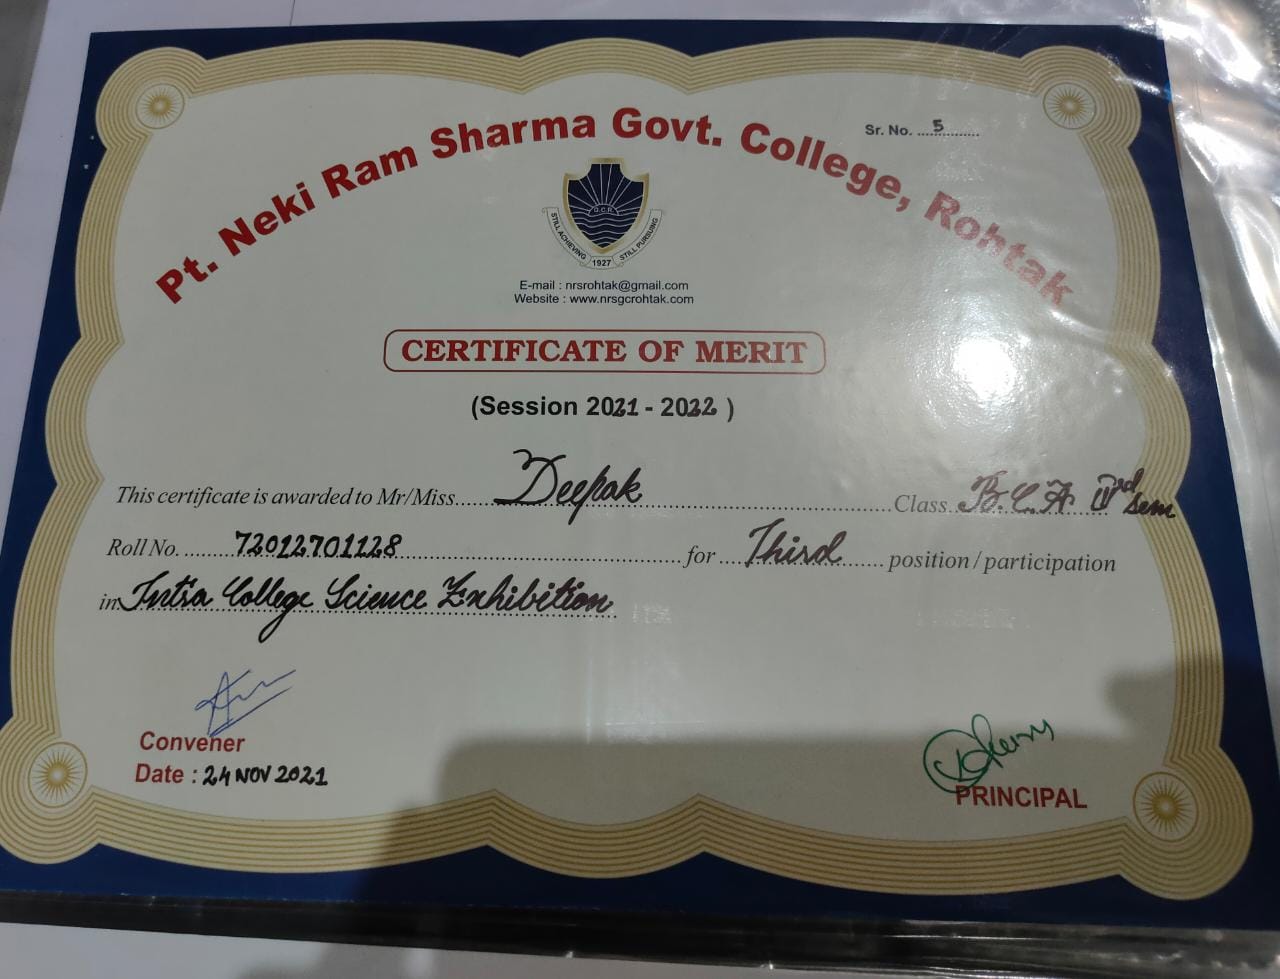 Sr. No. 5
Pt. Neki Ram Sharma Govt. College, Rohtak
G.C.R.
STILL ACHIEVING 1927 STILL PURSUING
E-mail : nrsrohtak@gmail.com
Website : www.nrsgcrohtak.com
CERTIFICATE OF MERIT
(Session 2021 - 2022 )
This certificate is awarded to Mr/Miss. Deepak Class B.C.A Sem
Roll No. 72012701128 for Third position / participation
in Intra College Science Exhibition
Convener
Date : 24 NOV 2021
PRINCIPAL